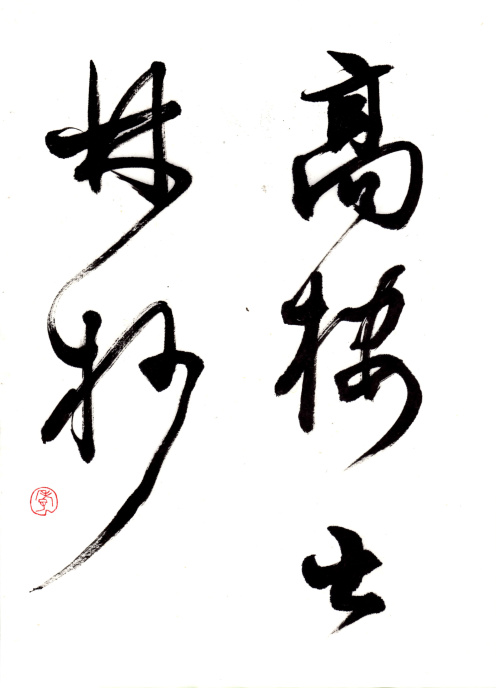 高樓出
林杪